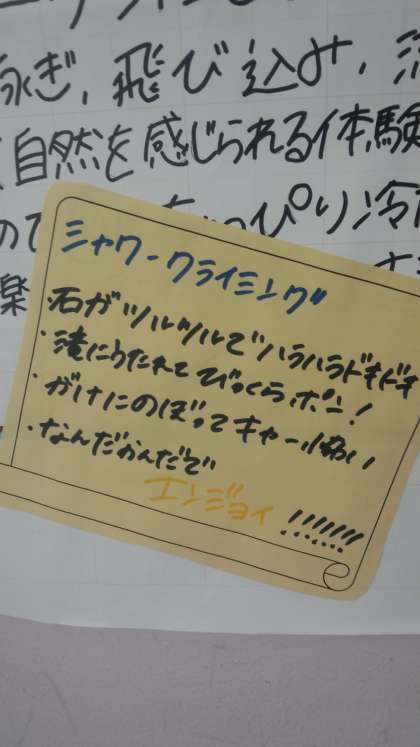 泳ぎ,飛び込み,
自然を感じられる体験
っぴり冷
楽
シャワークライミング
・石がツルツルでハラハラドキドキ
・滝にうたれてびっくらポン!
・がけにのぼってキャー怖い
・なんだかんだで
エンジョイ!!!!!!!